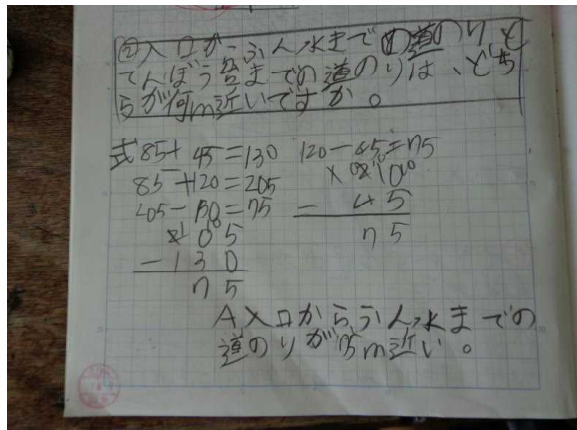 ②入口からふん水までの道のりと
てんぼう台までの道のりは、どち
らが何m近いですか。
式85+45=130 120-45=75
85+120=205
205-130=75
205
-130
75
-45
75
A入口からふん水までの
道のりが75m近い。